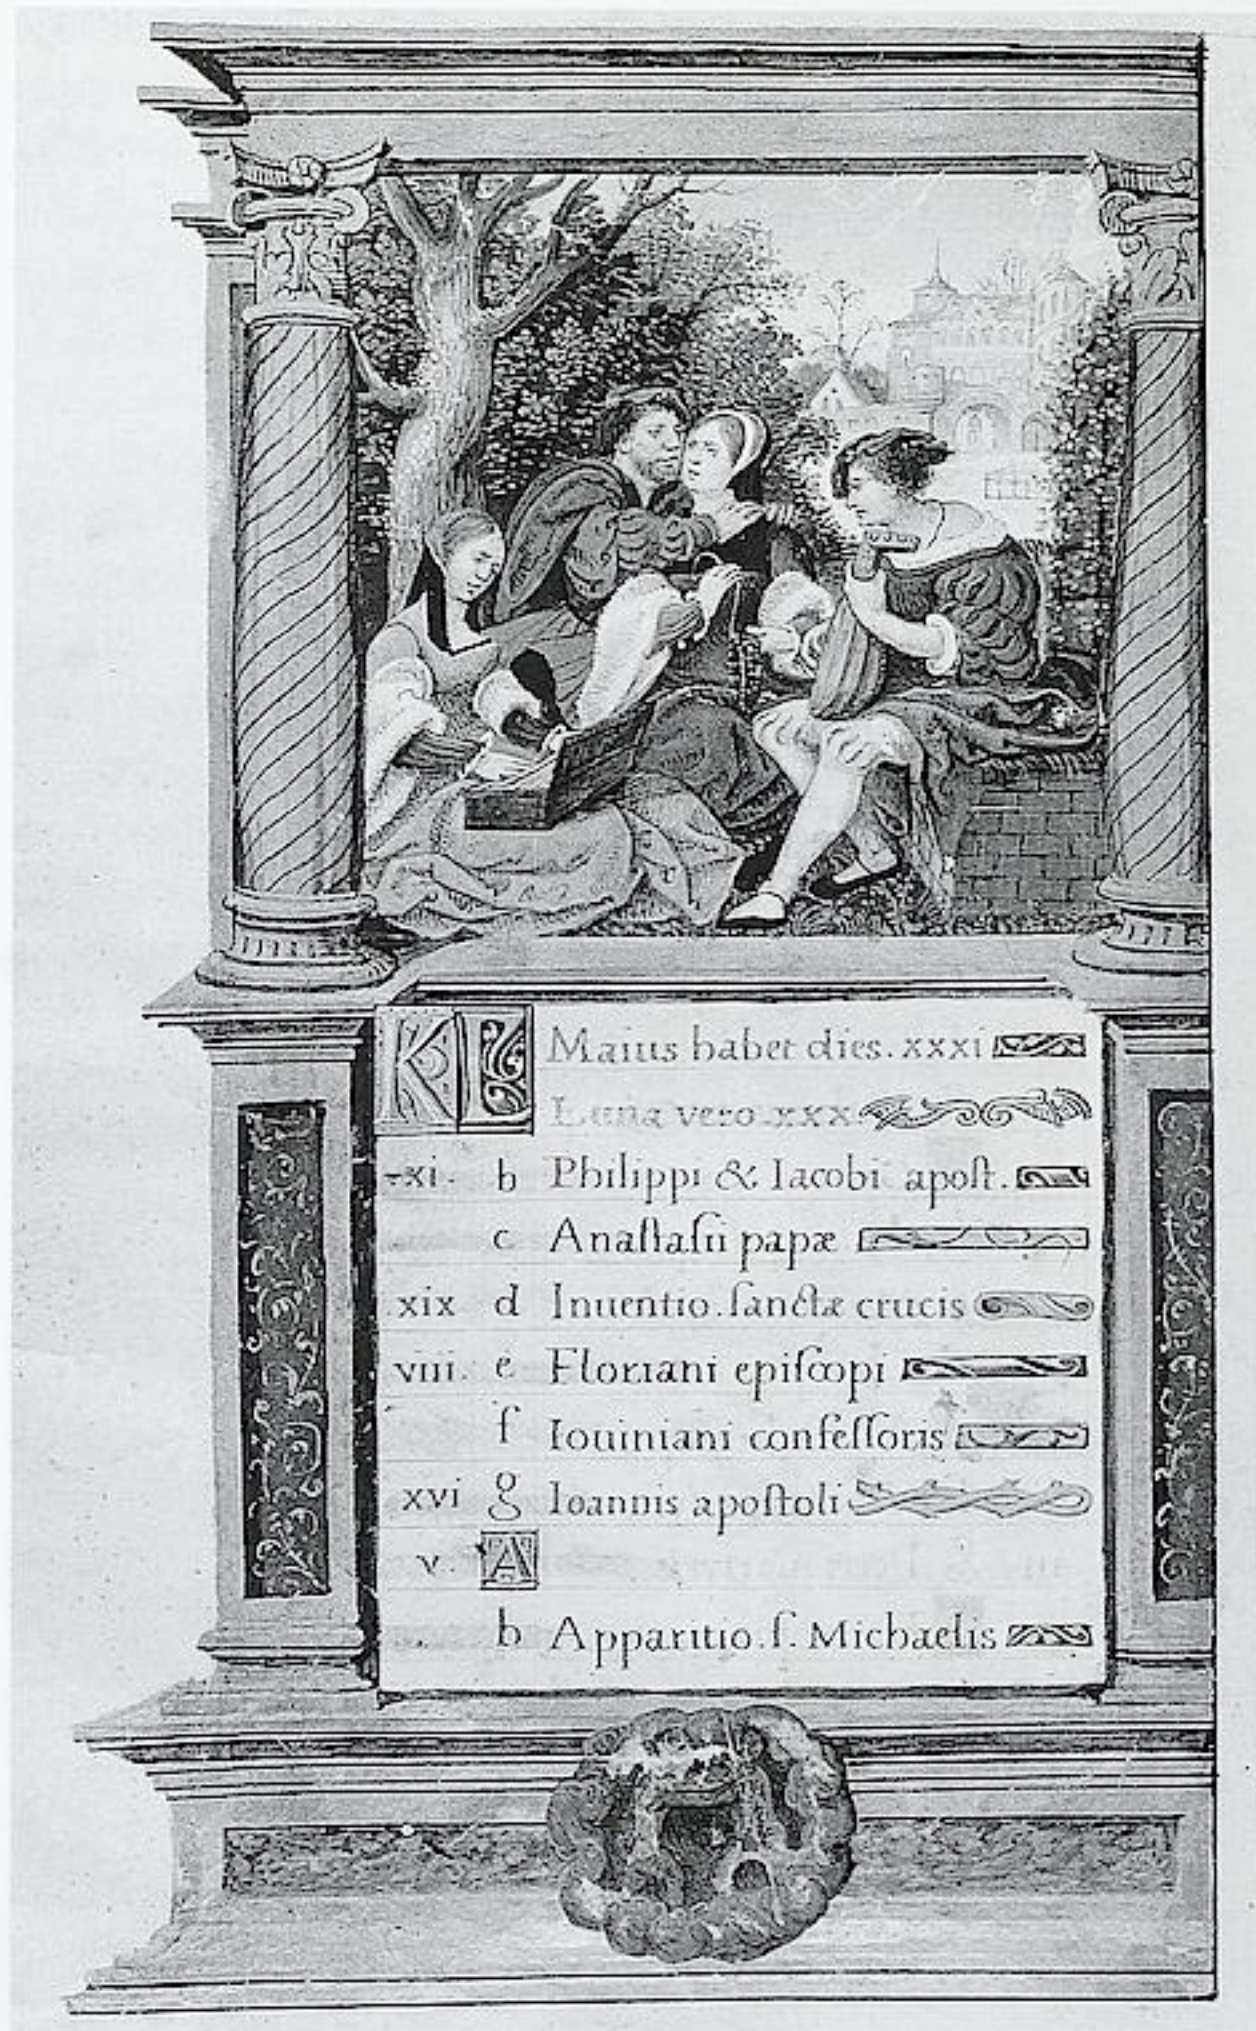 KL Maius habet dies. xxxi
Luna vero. xxx.
xi. b Philippi & Iacobi apoſt.
c Anaſtaſii papæ
xix d Inuentio. ſanctæ crucis
viii. e Floriani epiſcopi
f Iouiniani confeſſoris
xvi g Ioannis apoſtoli
v A
b Apparitio. ſ. Michaelis